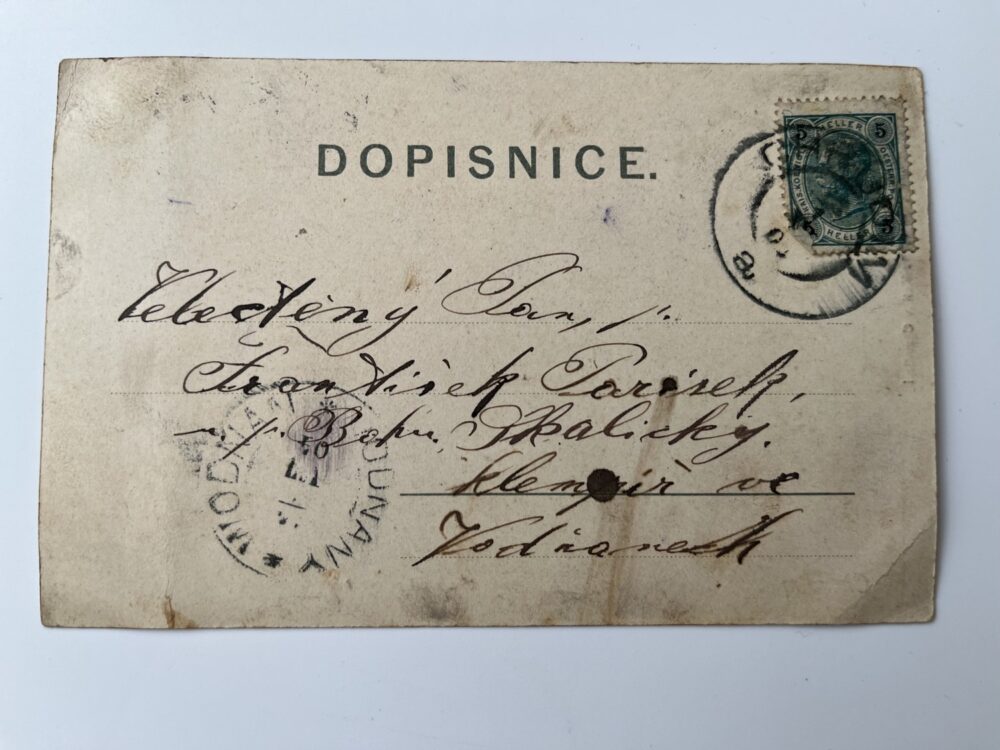 DOPISNICE.
5 HELLER 5
HELLER 5
8
Velectěný Pan, p.
František Pařísek,
u p. Bohu. Skalický.
klempíř ve
Vodňanech
WODNIAN